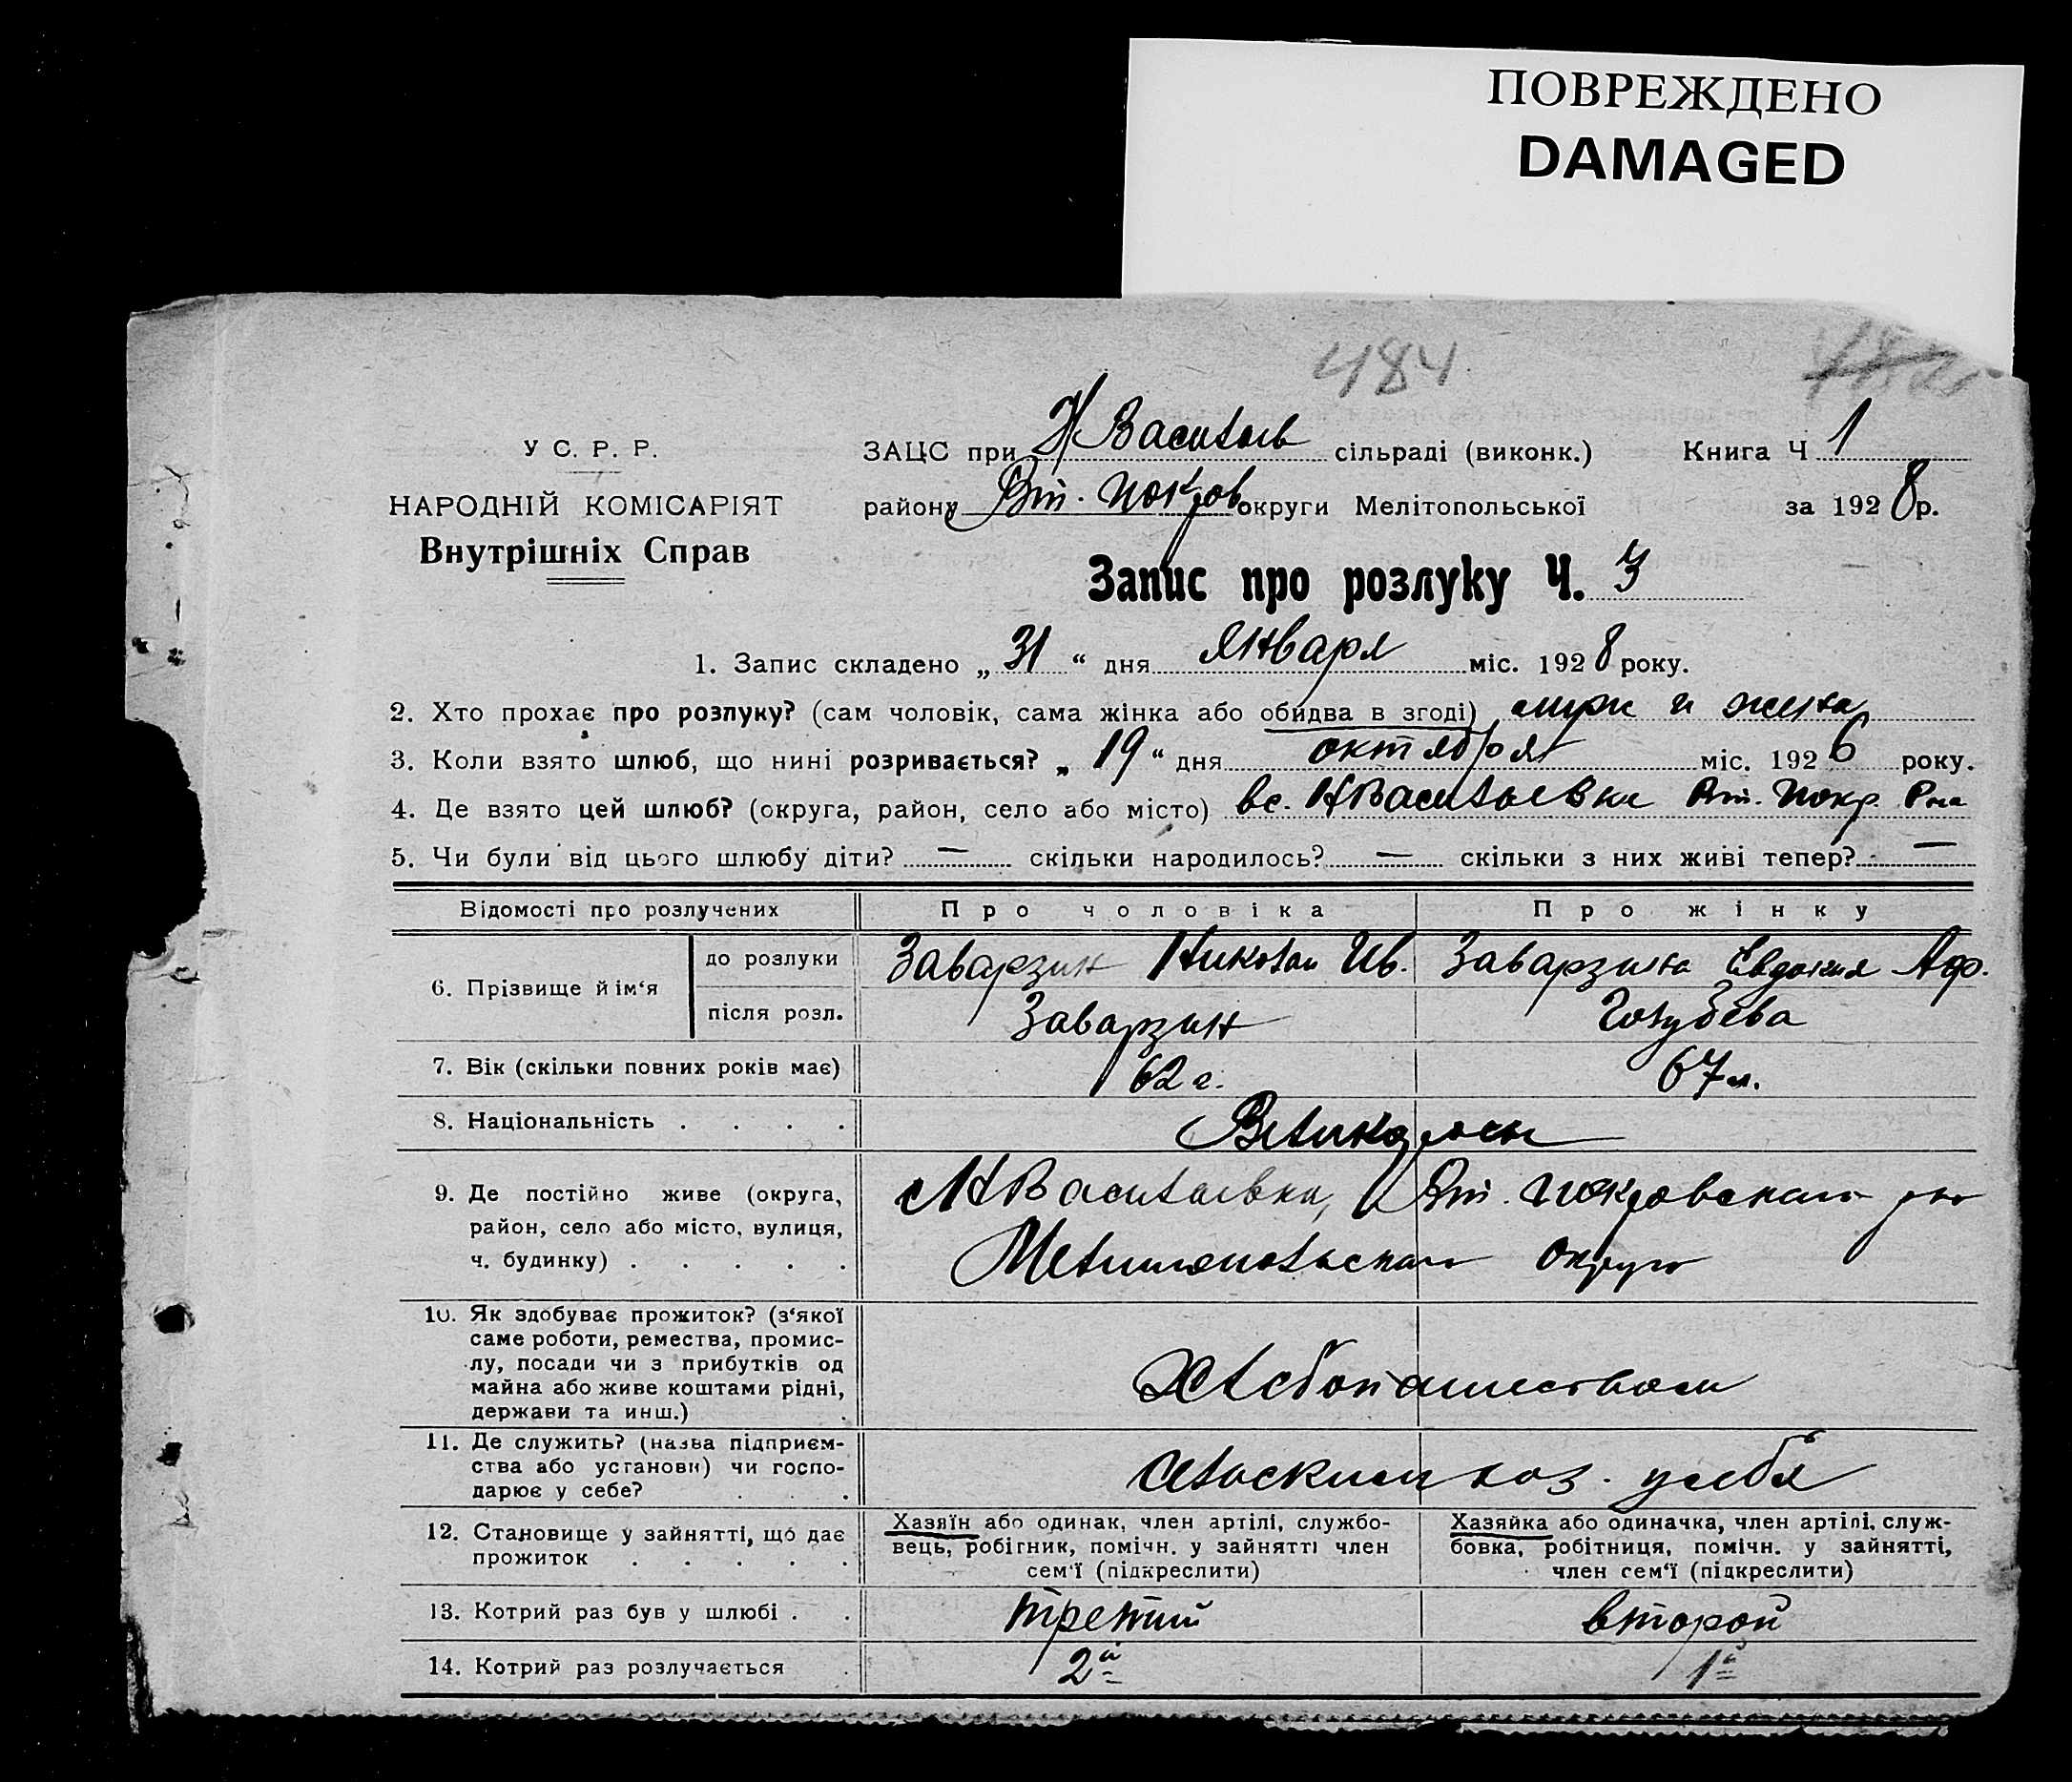 ПОВРЕЖДЕНО
DAMAGED
484
У С. Р. Р.
НАРОДНІЙ КОМІСАРІЯТ
Внутрішніх Справ
ЗАЦС при Н Васильев сільраді (виконк.) Книга Ч 1
району Вт. Покров округи Мелітопольської за 1928 р.
Запис про розлуку Ч. 3
1. Запис складено „ 31 “ дня Января міс. 1928 року.
2. Хто прохає про розлуку? (сам чоловік, сама жінка або обидва в згоді) и жена
3. Коли взято шлюб, що нині розривається? „ 19 “ дня октября міс. 1926 року.
4. Де взято цей шлюб? (округа, район, село або місто) вс. НВасильевки Вт. Покр. Рна
5. Чи були від цього шлюбу діти? — скільки народилось? — скільки з них живі тепер? —
Відомості про розлучених Про чоловіка Про жінку
6. Прізвище й ім‘я до розлуки Заварзин Николай Ив. Заварзина Евдокия Аф.
після розл. Заварзин Голубева
7. Вік (скільки повних років має) 62 г. 67 л.
8. Національність . . . . Великоросы
9. Де постійно живе (округа, район, село або місто, вулиця, ч. будинку) . . . . . НВасильевки, Вт. Покровскаго рна
Мелитопольскаго Округа
10. Як здобуває прожиток? (з‘якої саме роботи, ремества, промислу, посади чи з прибутків од майна або живе коштами рідні, держави та инш.) Хлебопашеством
11. Де служить? (назва підприємства або установи) чи господарює у себе? Сельским хоз. у себя
12. Становище у зайнятті, що дає прожиток . . . . . Хазяїн або одинак, член артілі, службовець, робітник, помічн. у зайнятті член сем‘ї (підкреслити) Хазяйка або одиначка, член артілі, службовка, робітниця, помічн. у зайнятті, член сем‘ї (підкреслити)
13. Котрий раз був у шлюбі . . третий второй
14. Котрий раз розлучається . 2й 1й